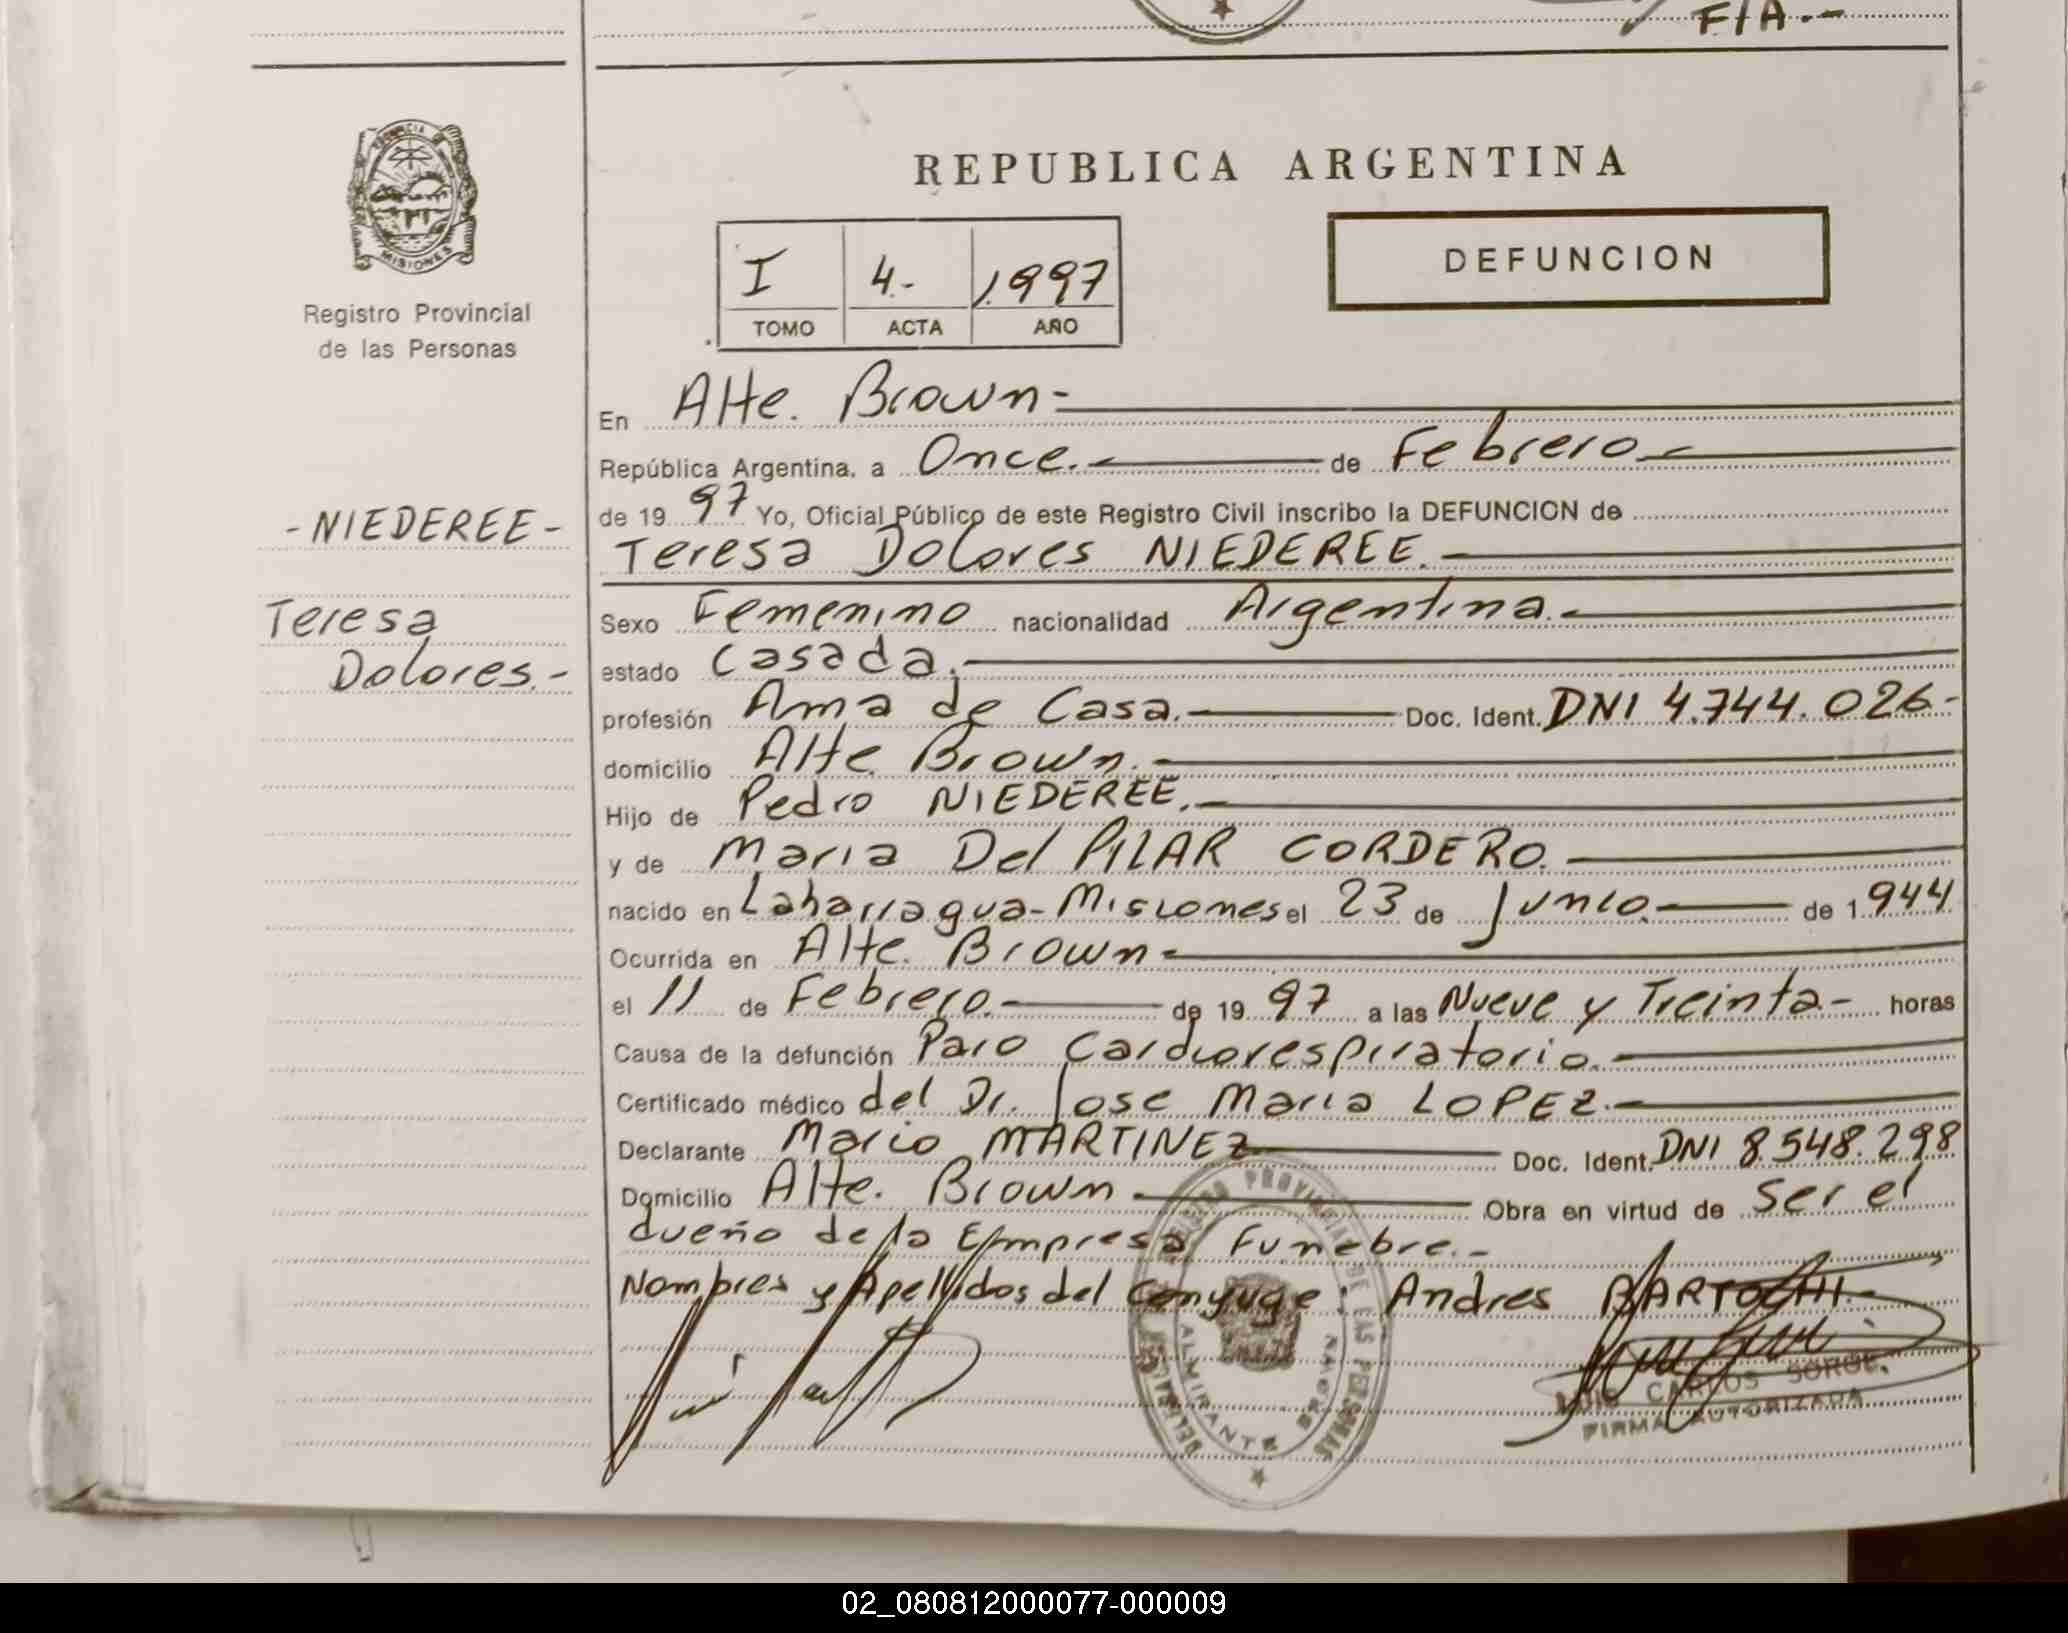 F/A.-
PROVINCIA DE
MISIONES
Registro Provincial
de las Personas
REPUBLICA ARGENTINA
I 4.- 1997
TOMO ACTA AÑO
DEFUNCION
En Alte. Brown-
República Argentina, a Once.- de Febrero.-
de 19 97 Yo, Oficial Público de este Registro Civil inscribo la DEFUNCION de
-NIEDEREE-
Teresa
Dolores.-
Teresa Dolores NIEDEREE.-
Sexo Femenino nacionalidad Argentina.-
estado Casada.-
profesión Ama de Casa.- Doc. Ident. DNI 4.744.026-
domicilio Alte Brown.-
Hijo de Pedro NIEDEREE.-
y de Maria Del PILAR CORDERO.-
nacido en Laharragua-Misiones el 23 de Junio.- de 1944
Ocurrida en Alte. Brown-
el 11 de Febrero.- de 19 97 a las Nueve y Treinta- horas
Causa de la defunción Paro Cardiorespiratorio.-
Certificado médico del Dr. Jose Maria LOPEZ.-
Declarante Mario MARTINEZ Doc. Ident. DNI 8.548.298
Domicilio Alte. Brown- Obra en virtud de Ser el
dueño de la Empresa Funebre.-
Nombres y Apellidos del Conyuge: Andres
REGISTRO PROVINCIAL DE LAS PERSONAS
ALMIRANTE BROWN
LUIS CARLOS SORGE
FIRMA AUTORIZADA
02_080812000077-000009